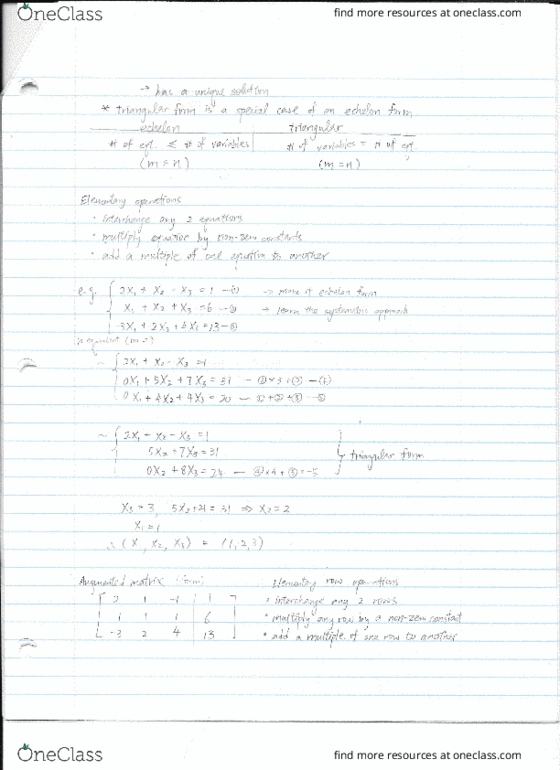 OneClass
find more resources at oneclass.com
→ has a unique solution
* triangular form is a special case of an echelon form
echelon triangular
# of eqt. ≤ # of variables # of variables = # of eqt.
(m ≤ n) (m = n)
Elementary operations
• interchange any 2 equations
• multiply equation by non-zero constants
• add a multiple of one equation to another
e.g. 2x₁ + x₂ - x₃ = 1 —① → make it echelon form
x₁ + x₂ + x₃ = 6 —② → learn the systematic approach
-3x₁ + 2x₂ + 4x₃ = 13 —③
is equivalent
~ 2x₁ + x₂ - x₃ = 1
0x₁ + 5x₂ + 7x₃ = 31
0x₁ + 4x₂ + 4x₃ = 20
~ 2x₁ - x₂ - x₃ = 1
5x₂ + 7x₃ = 31
0x₂ + 8x₃ = 24
triangular form
x₃ = 3, 5x₂ + 21 = 31 ⇒ x₂ = 2
x₁ = 1
∴ (x₁, x₂, x₃) = (1, 2, 3)
Augmented matrix (form) Elementary row operations
2 1 -1 1 • interchange any 2 rows
1 1 1 6 • multiply any row by a non-zero constant
-3 2 4 13 • add a multiple of one row to another
OneClass
find more resources at oneclass.com